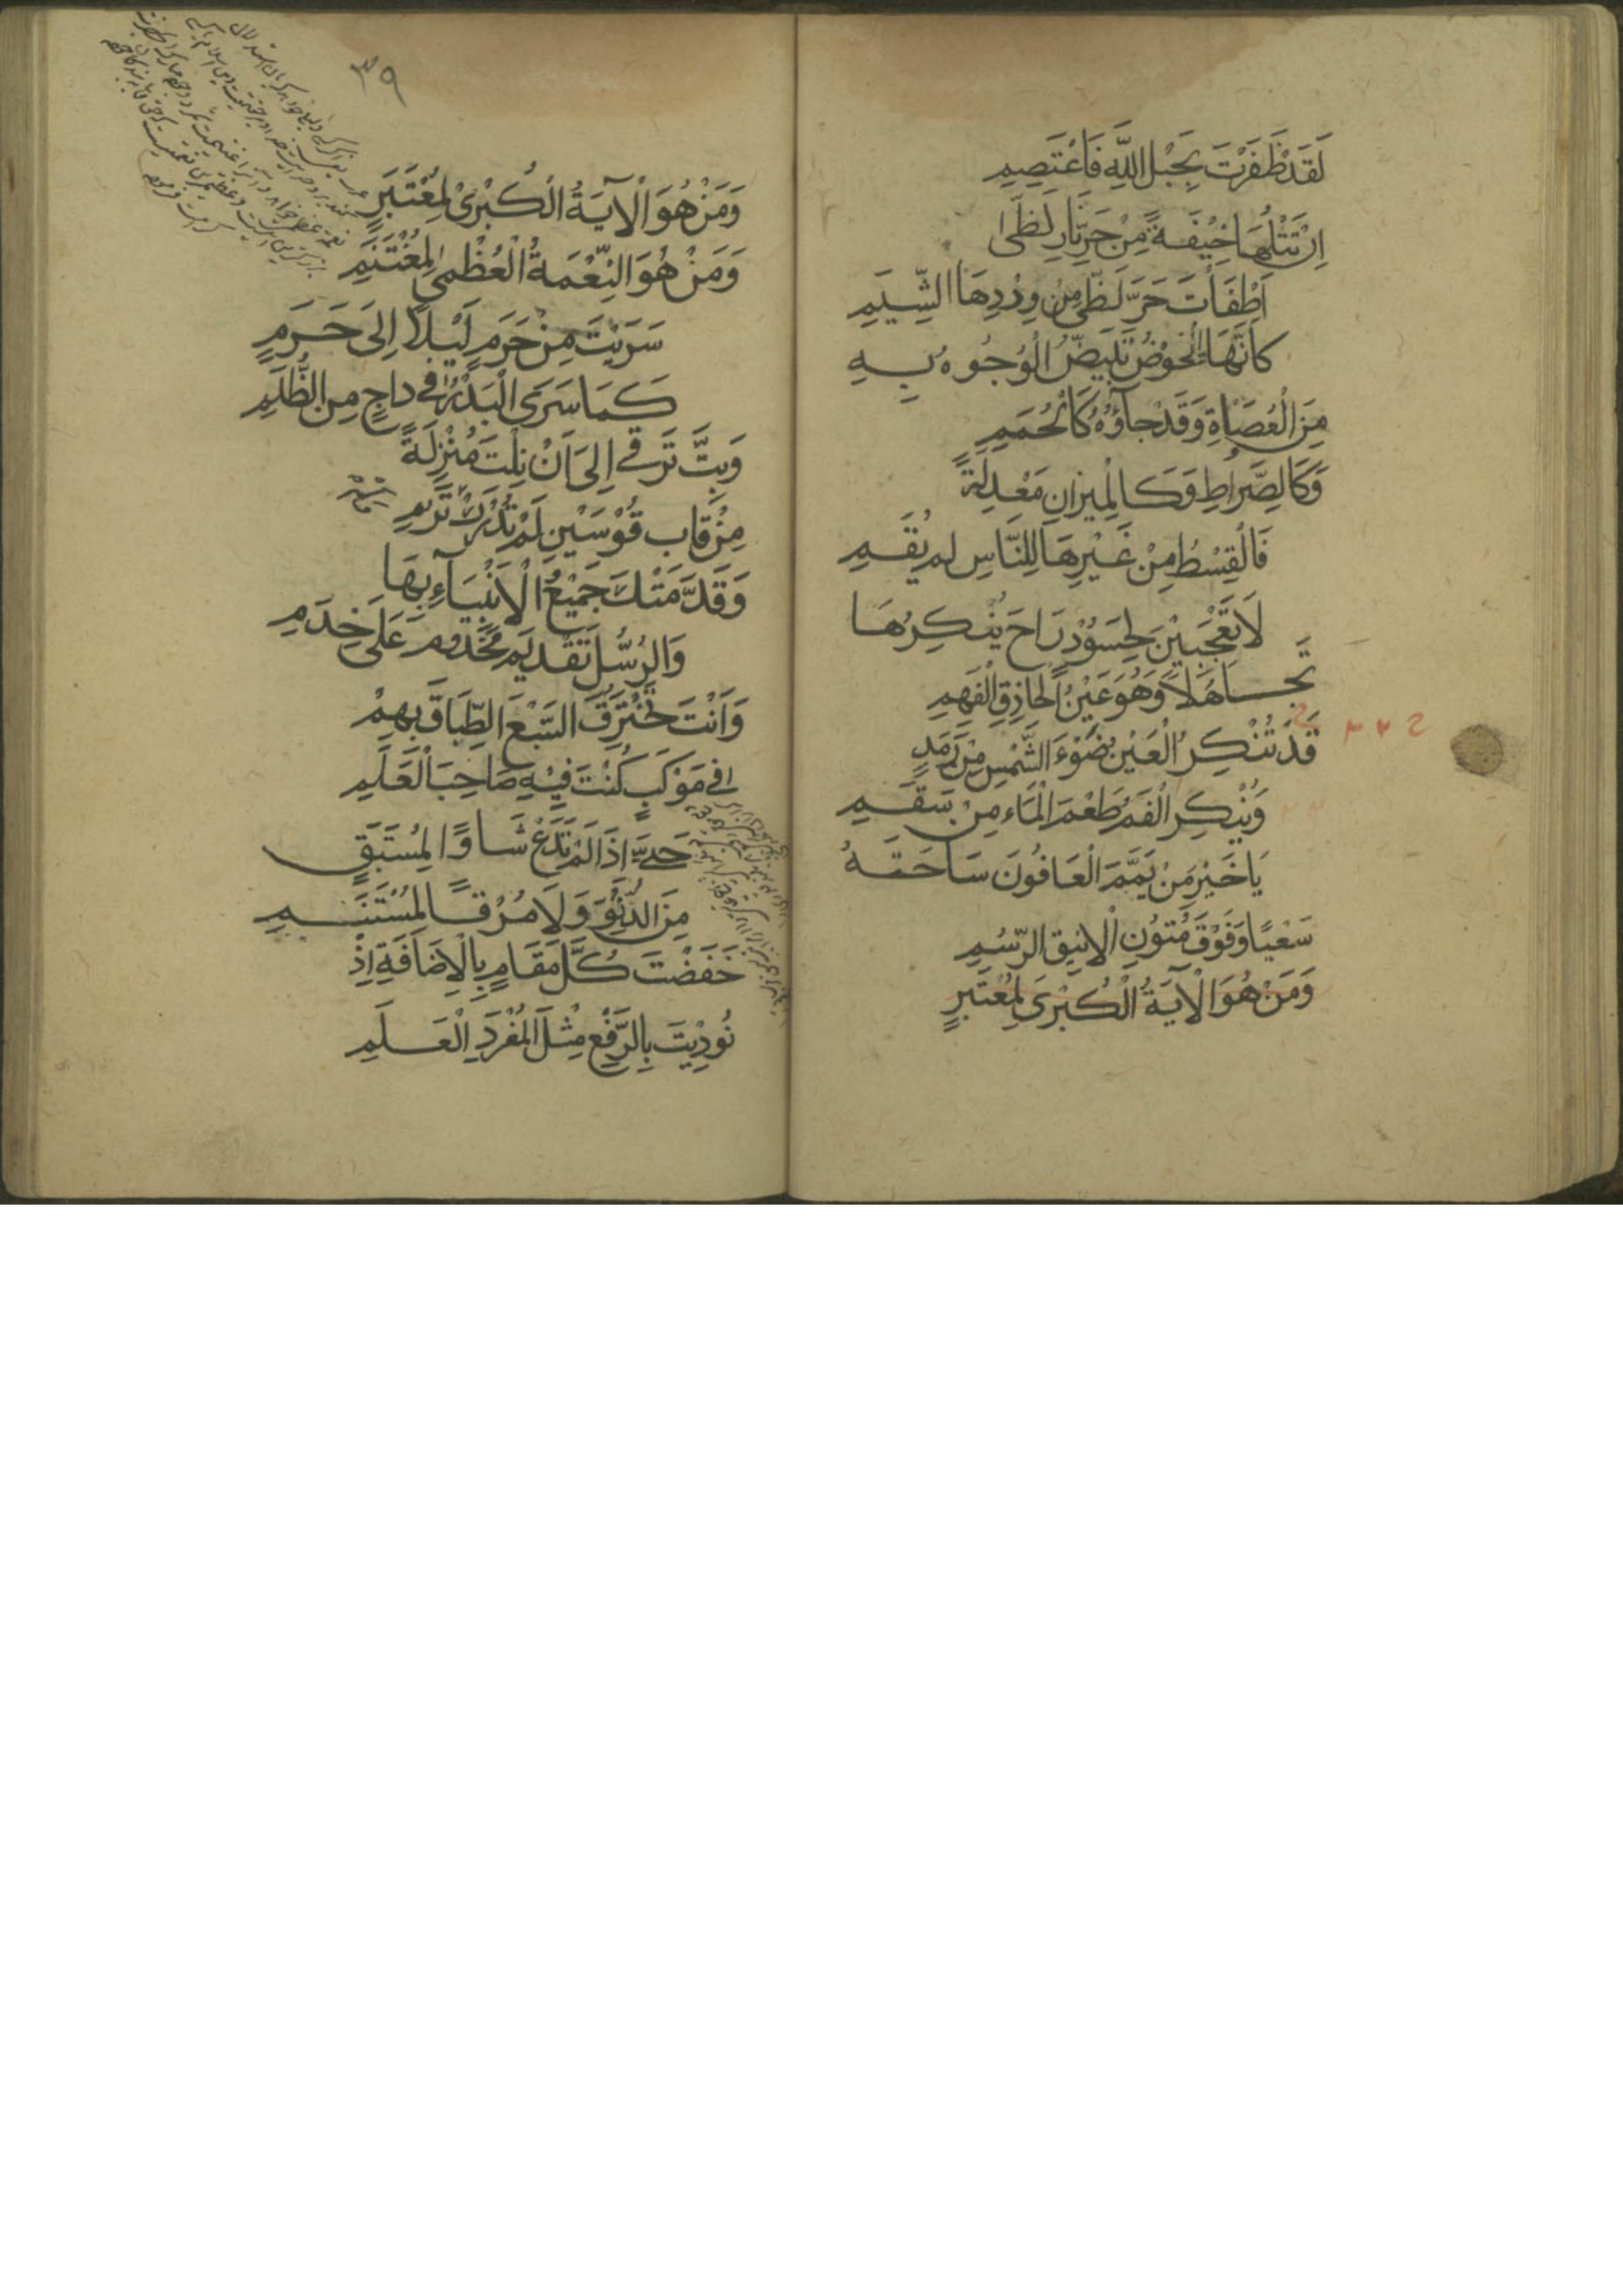 لَقَدْ ظَفَرْتَ بِحَبْلِ اللّٰهِ فَاعْتَصِمِ
اِنْ تَتْلُهَا خِيْفَةً مِنْ حَرِّ نَارِ لَظًى
اَطْفَأْتَ حَرَّ لَظًى مِنْ وِرْدِهَا الشَّيِمِ
كَاَنَّهَا الْحَوْضُ تَبْيَضُّ الْوُجُوهُ بِهِ
مِنَ الْعُصَاةِ وَقَدْ جَاؤُهُ كَالْحُمَمِ
وَكَالصِّرَاطِ وَكَالْمِيزَانِ مَعْدِلَةً
فَالْقِسْطُ مِنْ غَيْرِهَا لِلنَّاسِ لَمْ يَقُمِ
لَا تَعْجَبَيْنَ لِحَسُوْدٍ رَاحَ يُنْكِرُهَا
تَجَاهُلًا وَهُوَ عَيْنُ الْحَاذِقِ الْفَهِمِ
قَدْ تُنْكِرُ الْعَيْنُ ضَوْءَ الشَّمْسِ مِنْ رَمَدٍ
وَيُنْكِرُ الْفَمُ طَعْمَ الْمَاءِ مِنْ سَقَمِ
يَا خَيْرَ مَنْ يَمَّمَ الْعَافُونَ سَاحَتَهُ
سَعْيًا وَفَوْقَ مُتُوْنِ الْاَيْنِقِ الرُّسُمِ
وَمَنْ هُوَ الْآيَةُ الْكُبْرَى لِمُعْتَبِرٍ
٣٩
وَمَنْ هُوَ الْآيَةُ الْكُبْرَى لِمُعْتَبِرٍ
وَمَنْ هُوَ النِّعْمَةُ الْعُظْمٰى لِمُغْتَنِمِ
سَرَيْتَ مِنْ حَرَمٍ لَيْلًا اِلَى حَرَمٍ
كَمَا سَرَى الْبَدْرُ فِي دَاجٍ مِنَ الظُّلَمِ
وَبِتَّ تَرْقَى اِلَى اَنْ نِلْتَ مَنْزِلَةً
مِنْ قَابِ قَوْسَيْنِ لَمْ تُدْرَكْ تُرَمِ
وَقَدَّمَتْكَ جَمِيْعُ الْاَنْبِيَآءِ بِهَا
وَالرُّسُلِ تَقْدِيْمَ مَخْدُومٍ عَلَى خِدَمِ
وَاَنْتَ تَخْتَرِقُ السَّبْعَ الطِّبَاقَ بِهِمْ
فِي مَوْكَبٍ كُنْتَ فِيْهِ صَاحِبَ الْعَلَمِ
حَتّٰى اِذَا لَمْ تَدَعْ شَاوًا لِمُسْتَبِقٍ
مِنَ الدُّنُوِّ وَلَا مُرْقًا لِمُسْتَنِمِ
خَفَضْتَ كُلَّ مَقَامٍ بِالْاِضَافَةِ اِذْ
نُودِيْتَ بِالرَّفْعِ مِثْلَ الْمُفْرَدِ الْعَلَمِ